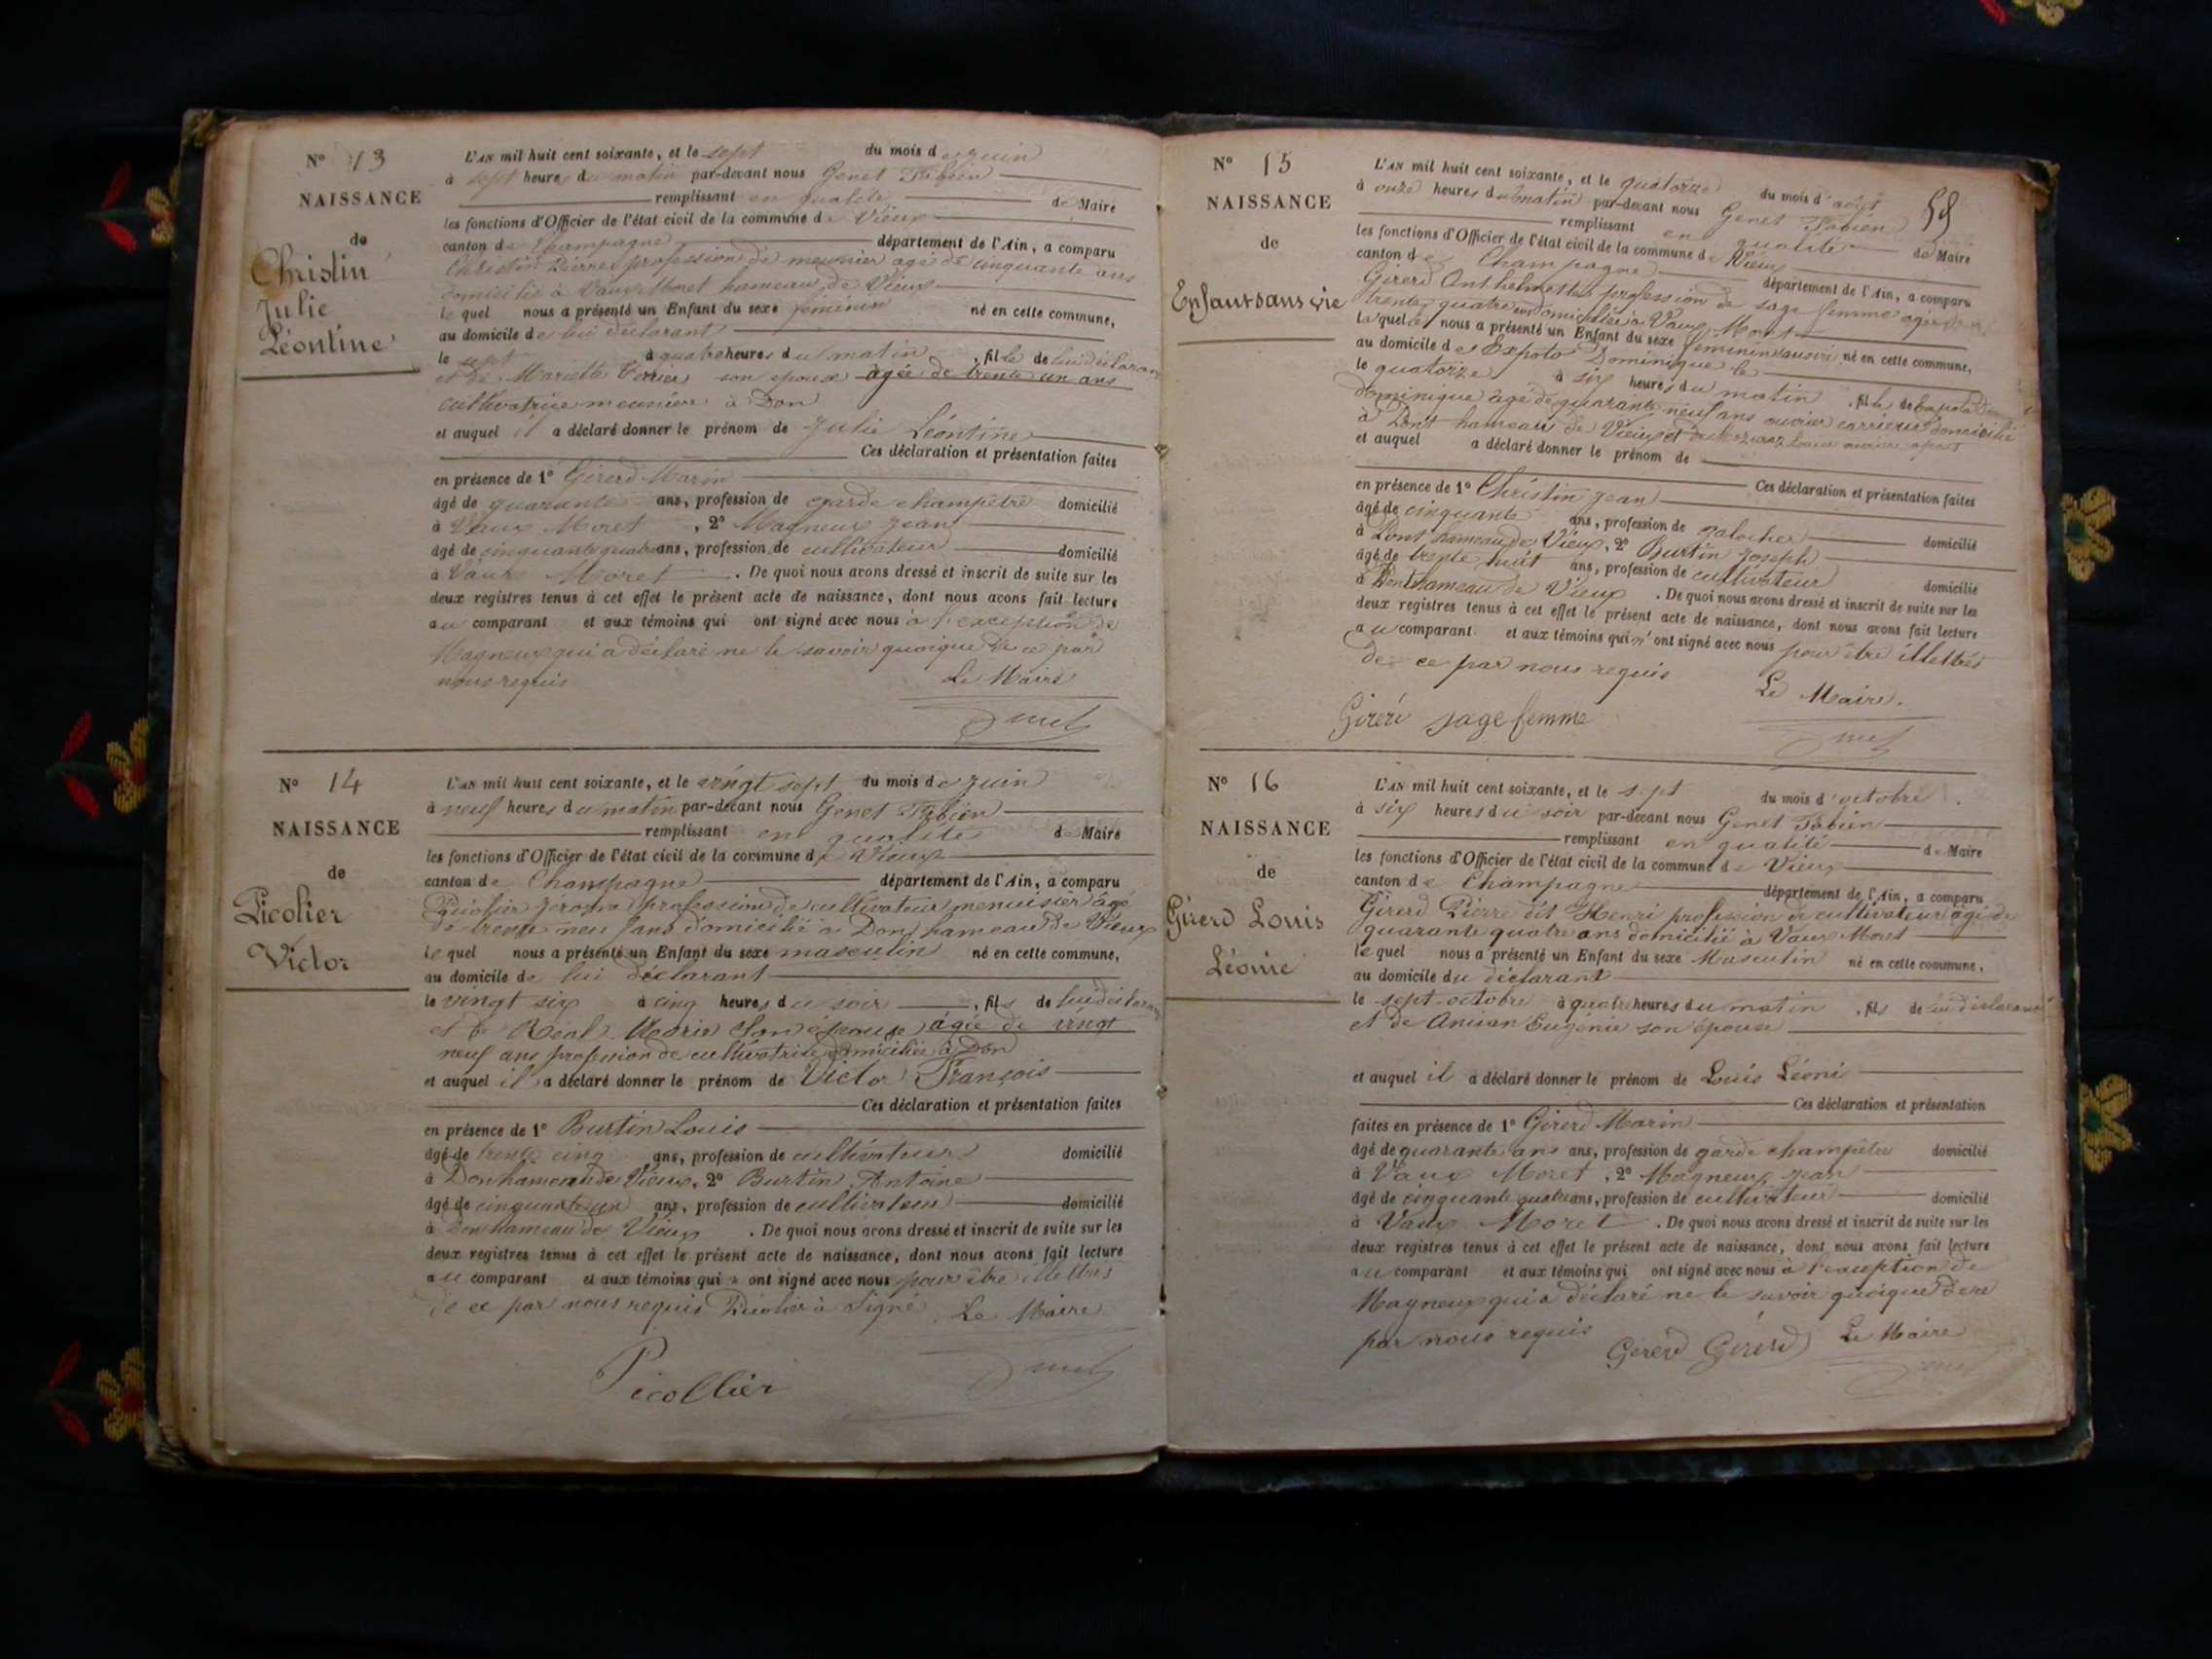 N° 13
NAISSANCE
de
Christin
Julie
Léontine
L'AN mil huit cent soixante, et le sept du mois de juin
à sept heures du matin par-devant nous Genet Fabien
remplissant en qualité de Maire
les fonctions d'Officier de l'état civil de la commune de Vieux
canton de Champagne département de l'Ain, a comparu
Christin Pierre profession de meunier agé de cinquante ans
domicilié à Vaux Moret hameau de Vieux
lequel nous a présenté un Enfant du sexe féminin né en cette commune,
au domicile de lui déclarant
le sept à quatre heures du matin, fille de lui déclarant
et de Mariette son épouse âgée de trente un ans
cultivatrice meunière à Don
et auquel il a déclaré donner le prénom de Julie Léontine
Ces déclaration et présentation faites
en présence de 1° Girerd Marin
âgé de quarante ans, profession de garde champêtre domicilié
à Vaux Moret, 2° Magneux Jean
âgé de cinquante quatre ans, profession de cultivateur domicilié
à Vaux Moret. De quoi nous avons dressé et inscrit de suite sur les
deux registres tenus à cet effet le présent acte de naissance, dont nous avons fait lecture
au comparant et aux témoins qui ont signé avec nous à l'exception de
Magneux qui a déclaré ne le savoir quoique de ce par
nous requis Le Maire
N° 14
NAISSANCE
de
Picolier
Victor
L'AN mil huit cent soixante, et le vingt sept du mois de juin
à neuf heures du matin par-devant nous Genet Fabien
remplissant en qualité de Maire
les fonctions d'Officier de l'état civil de la commune de Vieux
canton de Champagne département de l'Ain, a comparu
profession de cultivateur menuisier âgé
de trente neuf ans domicilié à Don hameau de Vieux
lequel nous a présenté un Enfant du sexe masculin né en cette commune,
au domicile de lui déclarant
le vingt six à cinq heures du soir, fils de lui déclarant
et de Real Marie son épouse âgée de vingt
neuf ans profession de cultivatrice domiciliée à Don
et auquel il a déclaré donner le prénom de Victor François
Ces déclaration et présentation faites
en présence de 1° Burtin Louis
âgé de trente cinq ans, profession de cultivateur domicilié
à Don hameau de Vieux, 2° Burtin Antoine
âgé de cinquante un ans, profession de cultivateur domicilié
à Don hameau de Vieux. De quoi nous avons dressé et inscrit de suite sur les
deux registres tenus à cet effet le présent acte de naissance, dont nous avons fait lecture
au comparant et aux témoins qui n'ont signé avec nous pour être illettrés
de ce par nous requis Picolier à signé Le Maire
Picollier
N° 15
NAISSANCE
de
Enfant sans vie
L'AN mil huit cent soixante, et le quatorze du mois d'août
à onze heures du matin par-devant nous Genet Fabien
remplissant en qualité de Maire
les fonctions d'Officier de l'état civil de la commune de Vieux
canton de Champagne département de l'Ain, a comparu
Girerd Anthelmette profession de sage femme agée de
trente quatre ans domiciliée à Vaux Moret
laquelle nous a présenté un Enfant du sexe féminin sans vie né en cette commune,
au domicile de Expoto Dominique
le quatorze à six heures du matin, fille de Expoto
dominique âgé de quarante neuf ans ouvrier carrieur domicilié
à Dont hameau de Vieux et de
et auquel a déclaré donner le prénom de
Ces déclaration et présentation faites
en présence de 1° Christin Jean
âgé de cinquante ans, profession de galocher domicilié
à Dont hameau de Vieux, 2° Burtin Joseph
âgé de trente huit ans, profession de cultivateur domicilié
à Dont hameau de Vieux. De quoi nous avons dressé et inscrit de suite sur les
deux registres tenus à cet effet le présent acte de naissance, dont nous avons fait lecture
au comparant et aux témoins qui n'ont signé avec nous pour être illettrés
de ce par nous requis Le Maire.
Girerd sage femme
N° 16
NAISSANCE
de
Girerd Louis
Léonie
L'AN mil huit cent soixante, et le sept du mois d'octobre
à six heures du soir par-devant nous Genet Fabien
remplissant en qualité de Maire
les fonctions d'Officier de l'état civil de la commune de Vieux
canton de Champagne département de l'Ain, a comparu
Girerd Pierre dit Henri profession de cultivateur âgé de
quarante quatre ans domicilié à Vaux Moret
lequel nous a présenté un Enfant du sexe Masculin né en cette commune,
au domicile du déclarant
le sept octobre à quatre heures du matin, fils de lui déclarant
et de Eugénie son épouse
et auquel il a déclaré donner le prénom de Louis Léoni
Ces déclaration et présentation
faites en présence de 1° Girerd Marin
âgé de quarante ans ans, profession de garde champêtre domicilié
à Vaux Moret, 2° Magneux Jean
âgé de cinquante quatre ans, profession de cultivateur domicilié
à Vaux Moret. De quoi nous avons dressé et inscrit de suite sur les
deux registres tenus à cet effet le présent acte de naissance, dont nous avons fait lecture
au comparant et aux témoins qui ont signé avec nous à l'exception de
Magneux qui a déclaré ne le savoir quoique de ce
par nous requis Le Maire
Girerd Girerd